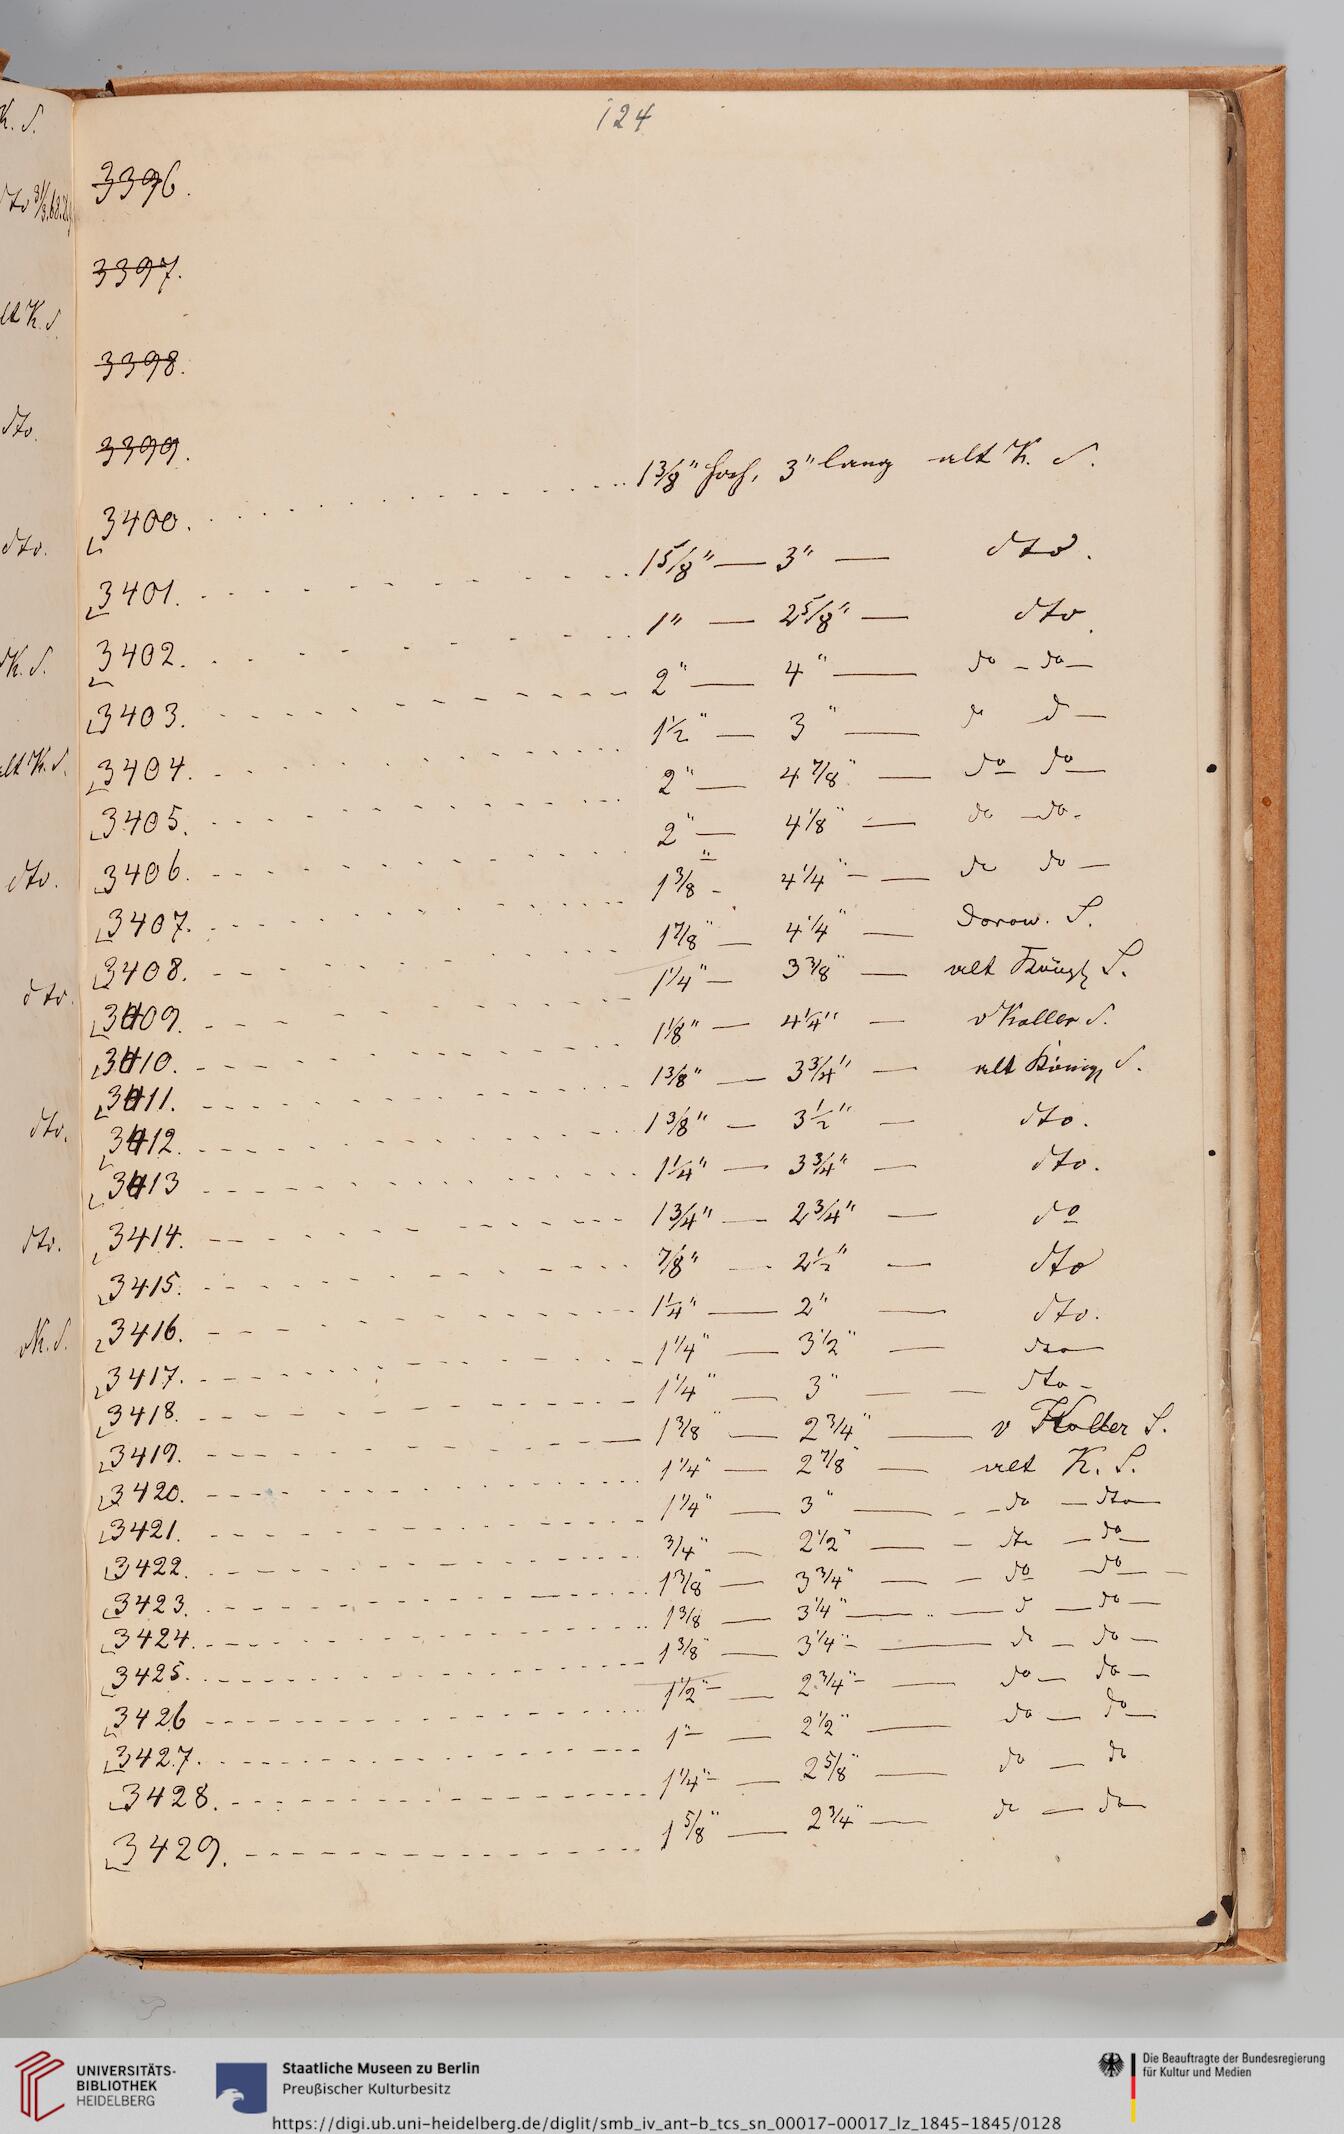 124
K. S.
dto 31/3.68.
3396.
3397.
alt K. S.
3398.
dto.
3399.
3400. 1 3/8" hoch, 3" lang alt K. S.
dto.
3401. 1 5/8" — 3" — dto.
3402. 1" — 2 5/8" — dto.
K. S.
3403. 2" — 4" — do – do —
3404. 1 1/2" — 3" — do d —
alt K. S.
3405. 2" — 4 7/8" — do do
3406. 2" — 4 1/8" — do — do.
dto.
3407. 1 3/8" – 4 1/4" — do do —
3408. 1 7/8" — 4 1/4" — Dorow. S.
dto.
3409. 1 1/4" — 3 3/8" — alt Königl S.
3410. 1 1/8" — 4 1/4" — v Koller S.
3411. 1 3/8" — 3 3/4" — alt König S.
dto.
3412. 1 3/8" — 3 1/2" — dto.
3413 1 1/4" — 3 3/4" — dto.
dto.
3414. 1 3/4" — 2 3/4" — do
3415. 7/8" — 2 1/2" — dto
vK. S.
3416. 1 1/4" — 2" — dto.
3417. 1 1/4" — 3 1/2" — dto
3418. 1 1/4" — 3" — — dto –
3419. 1 3/8" — 2 3/4" — v Koller S.
3420. 1 1/4" — 2 7/8" — alt K. S.
3421. 1 1/4" — 3" — – do — dto
3422. 3/4" — 2 1/2" — – dto — do
3423. 1 3/8" — 3 3/4" — — do do —
3424. 1 3/8 — 3 1/4" — — d — do —
3425. 1 3/8" — 3 1/4" — do — do —
3426 1 1/2" — 2 3/4" — do — do —
3427. 1" — 2 1/2" — do — do
3428. 1 1/4" — 2 5/8" — do — do
3429. 1 5/8" — 2 3/4" — do — do
UNIVERSITÄTS-
BIBLIOTHEK
HEIDELBERG
Staatliche Museen zu Berlin
Preußischer Kulturbesitz
Die Beauftragte der Bundesregierung
für Kultur und Medien
https://digi.ub.uni-heidelberg.de/diglit/smb_iv_ant-b_tcs_sn_00017-00017_lz_1845-1845/0128